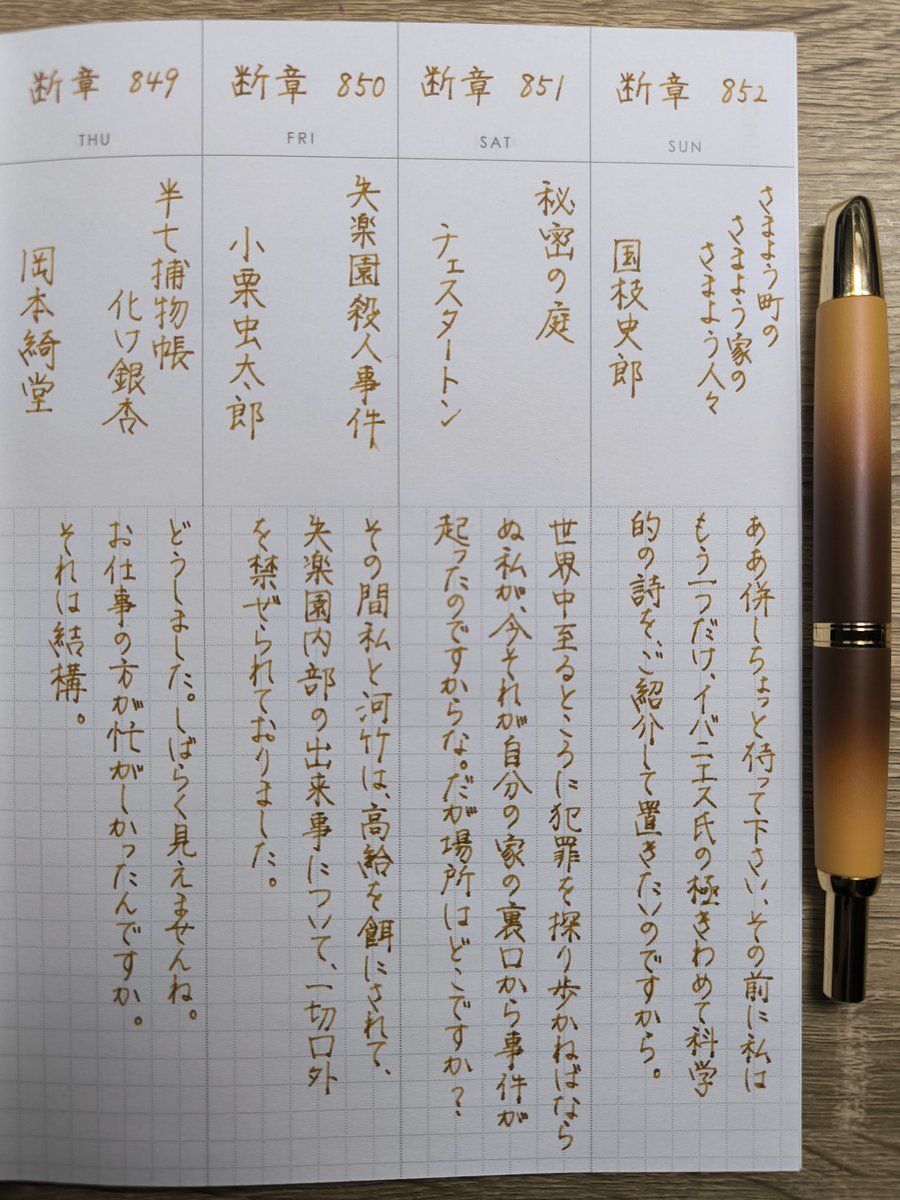 断章 849
THU
半七捕物帳
化け銀杏
岡本綺堂
どうしました。しばらく見えませんね。
お仕事の方が忙がしかったんですか。
それは結構。
断章 850
FRI
失楽園殺人事件
小栗虫太郎
その間私と河竹は、高給を餌にされて、
失楽園内部の出来事について、一切口外
を禁ぜられておりました。
断章 851
SAT
秘密の庭
チェスタートン
世界中至るところに犯罪を探り歩かねばなら
ぬ私が、今それが自分の家の裏口から事件が
起ったのですからな。だが場所はどこですか?
断章 852
SUN
さまよう町の
さまよう家の
さまよう人々
国枝史郎
ああ併しちょっと待って下さい、その前に私は
もう一つだけ、イバニエス氏の極きわめて科学
的の詩を、ご紹介して置きたいのですから。